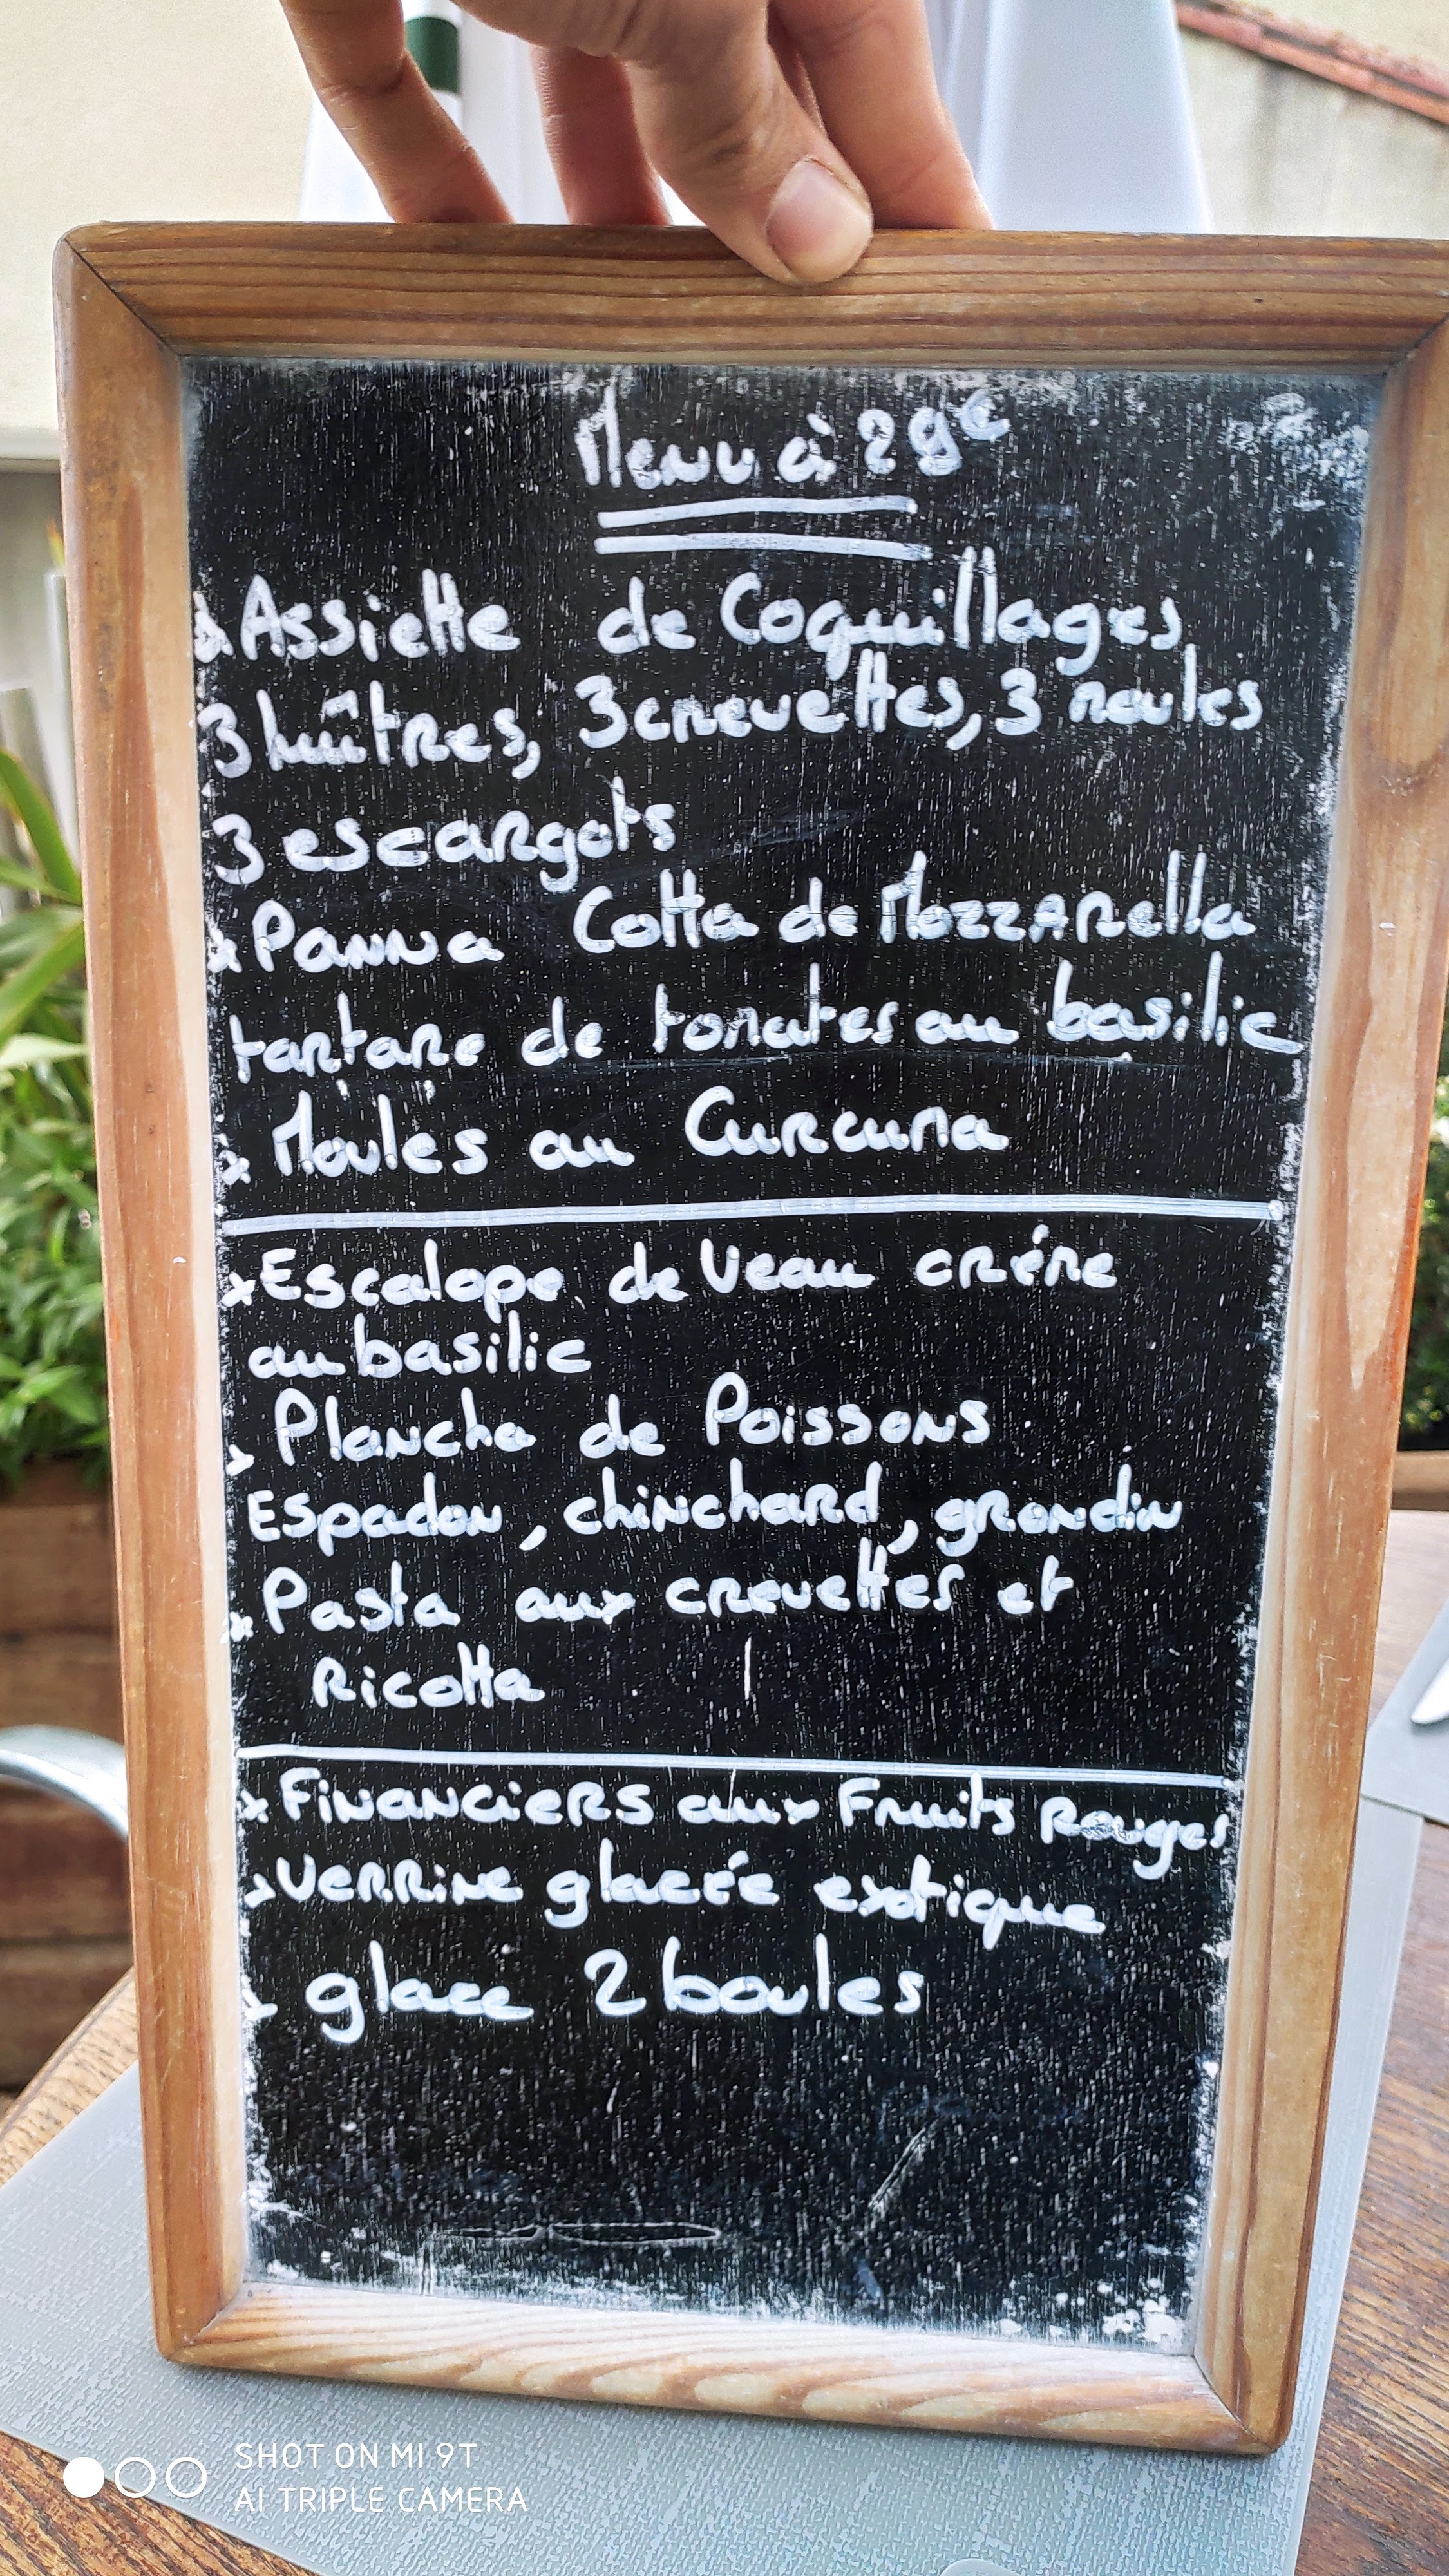 Menu à 29€
Assiette de Coquillages
3 huîtres, 3 crevettes, 3 moules
3 escargots
Panna Cotta de Mozzarella
tartare de tomates au basilic
Moules au Curcuma
Escalope de Veau crème
au basilic
Plancha de Poissons
Espadon, chinchard, grondin
Pasta aux crevettes et
Ricotta
Financiers aux Fruits Rouges
Verrine glacée exotique
glace 2 boules
SHOT ON MI 9T
AI TRIPLE CAMERA